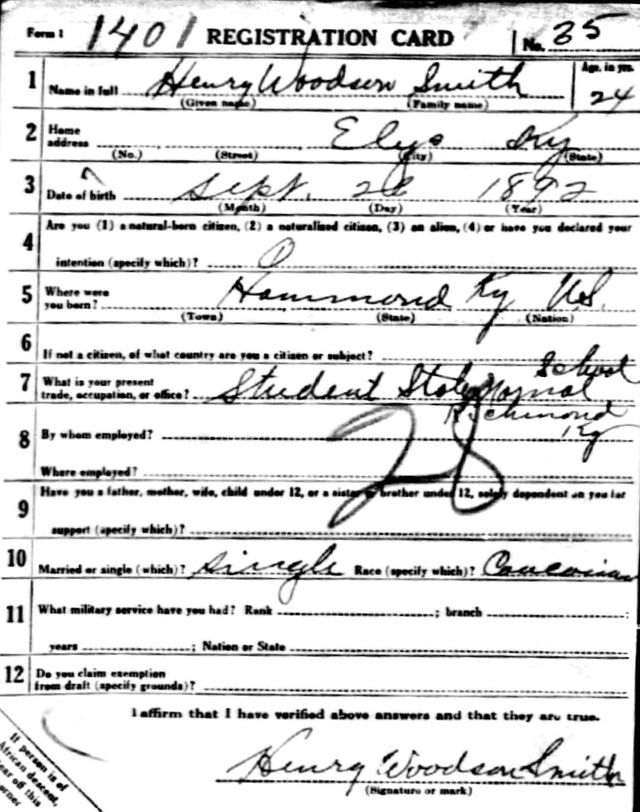 Form 1 1401 REGISTRATION CARD No. 35
1 Name in full Henry Woodson Smith Age, in yrs. 24
(Given name) (Family name)
2 Home address Elys Ky
(No.) (Street) (City) (State)
3 Date of birth Sept. 28 1892
(Month) (Day) (Year)
4 Are you (1) a natural-born citizen, (2) a naturalized citizen, (3) an alien, (4) or have you declared your
intention (specify which)?
5 Where were you born? Hammond Ky U.S.
(Town) (State) (Nation)
6 If not a citizen, of what country are you a citizen or subject?
School
7 What is your present trade, occupation, or office? Student State Normal
Richmond
Ky
8 By whom employed?
28
Where employed?
9 Have you a father, mother, wife, child under 12, or a sister or brother under 12, solely dependent on you for
support (specify which)?
10 Married or single (which)? Single Race (specify which)? Caucasian
11 What military service have you had? Rank ; branch ;
years ; Nation or State
12 Do you claim exemption
from draft (specify grounds)?
I affirm that I have verified above answers and that they are true.
Henry Woodson Smith
(Signature or mark)
If person is of
African descent,
tear off this
corner